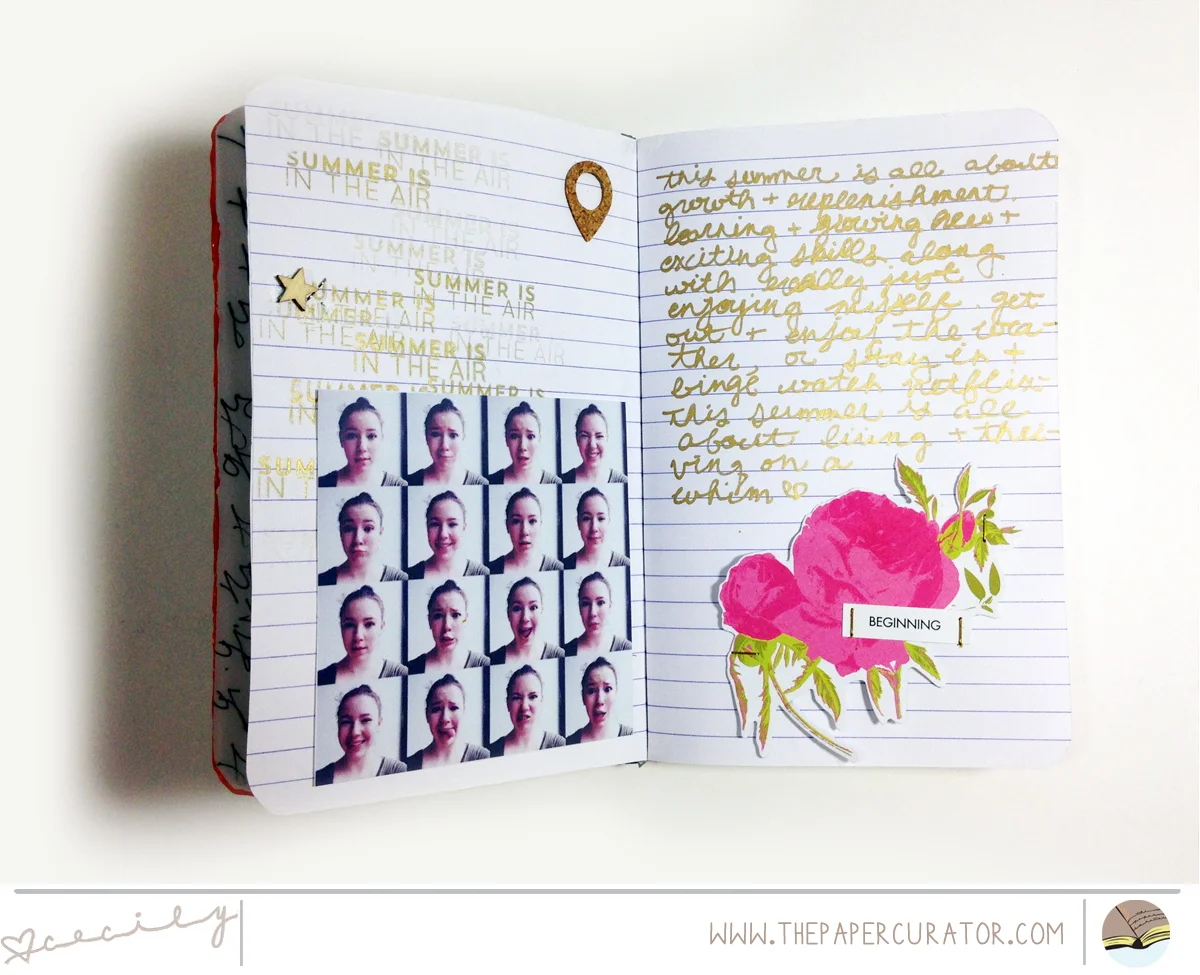 SUMMER IS
IN THE AIR
SUMMER IS
IN THE AIR
SUMMER IS
IN THE AIR
SUMMER IS
IN THE AIR
SUMMER IS
SUMMER IS
IN THE AIR
SUMMER IS
IN THE AIR
SUMMER
IN THE AIR
SUMMER IS
IN THE AIR
SUMMER IS
SUMMER IS
IN
SUM
IN T
this summer is all about
growth + replenishment.
learning + growing new +
exciting skills along
with really just
enjoying myself. get
out + enjoy the wea-
ther, or stay in +
binge watch netflix.
this summer is all
about living + thri-
ving on a
whim ♡
BEGINNING
cecily
WWW.THEPAPERCURATOR.COM